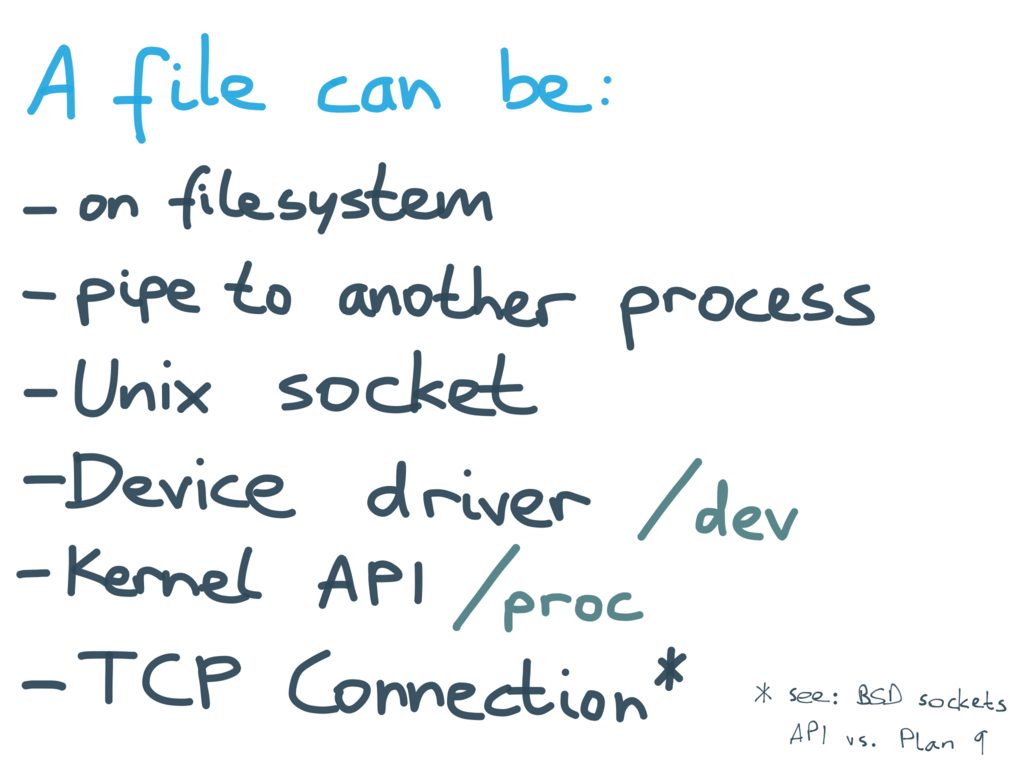 A file can be:
- on filesystem
- pipe to another process
- Unix socket
- Device driver /dev
- Kernel API /proc
- TCP Connection*
* see: BSD sockets
API vs. Plan 9